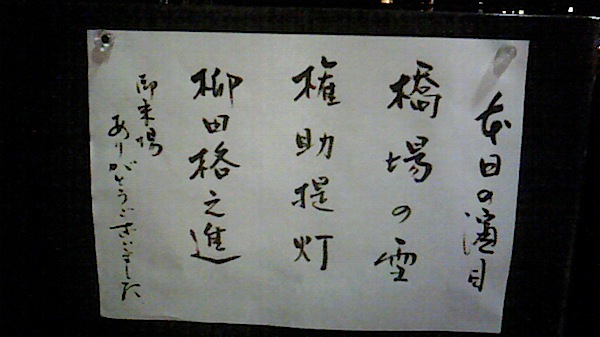 本日の演目
橋場の雪
権助提灯
柳田格之進
御来場
ありがとうございました